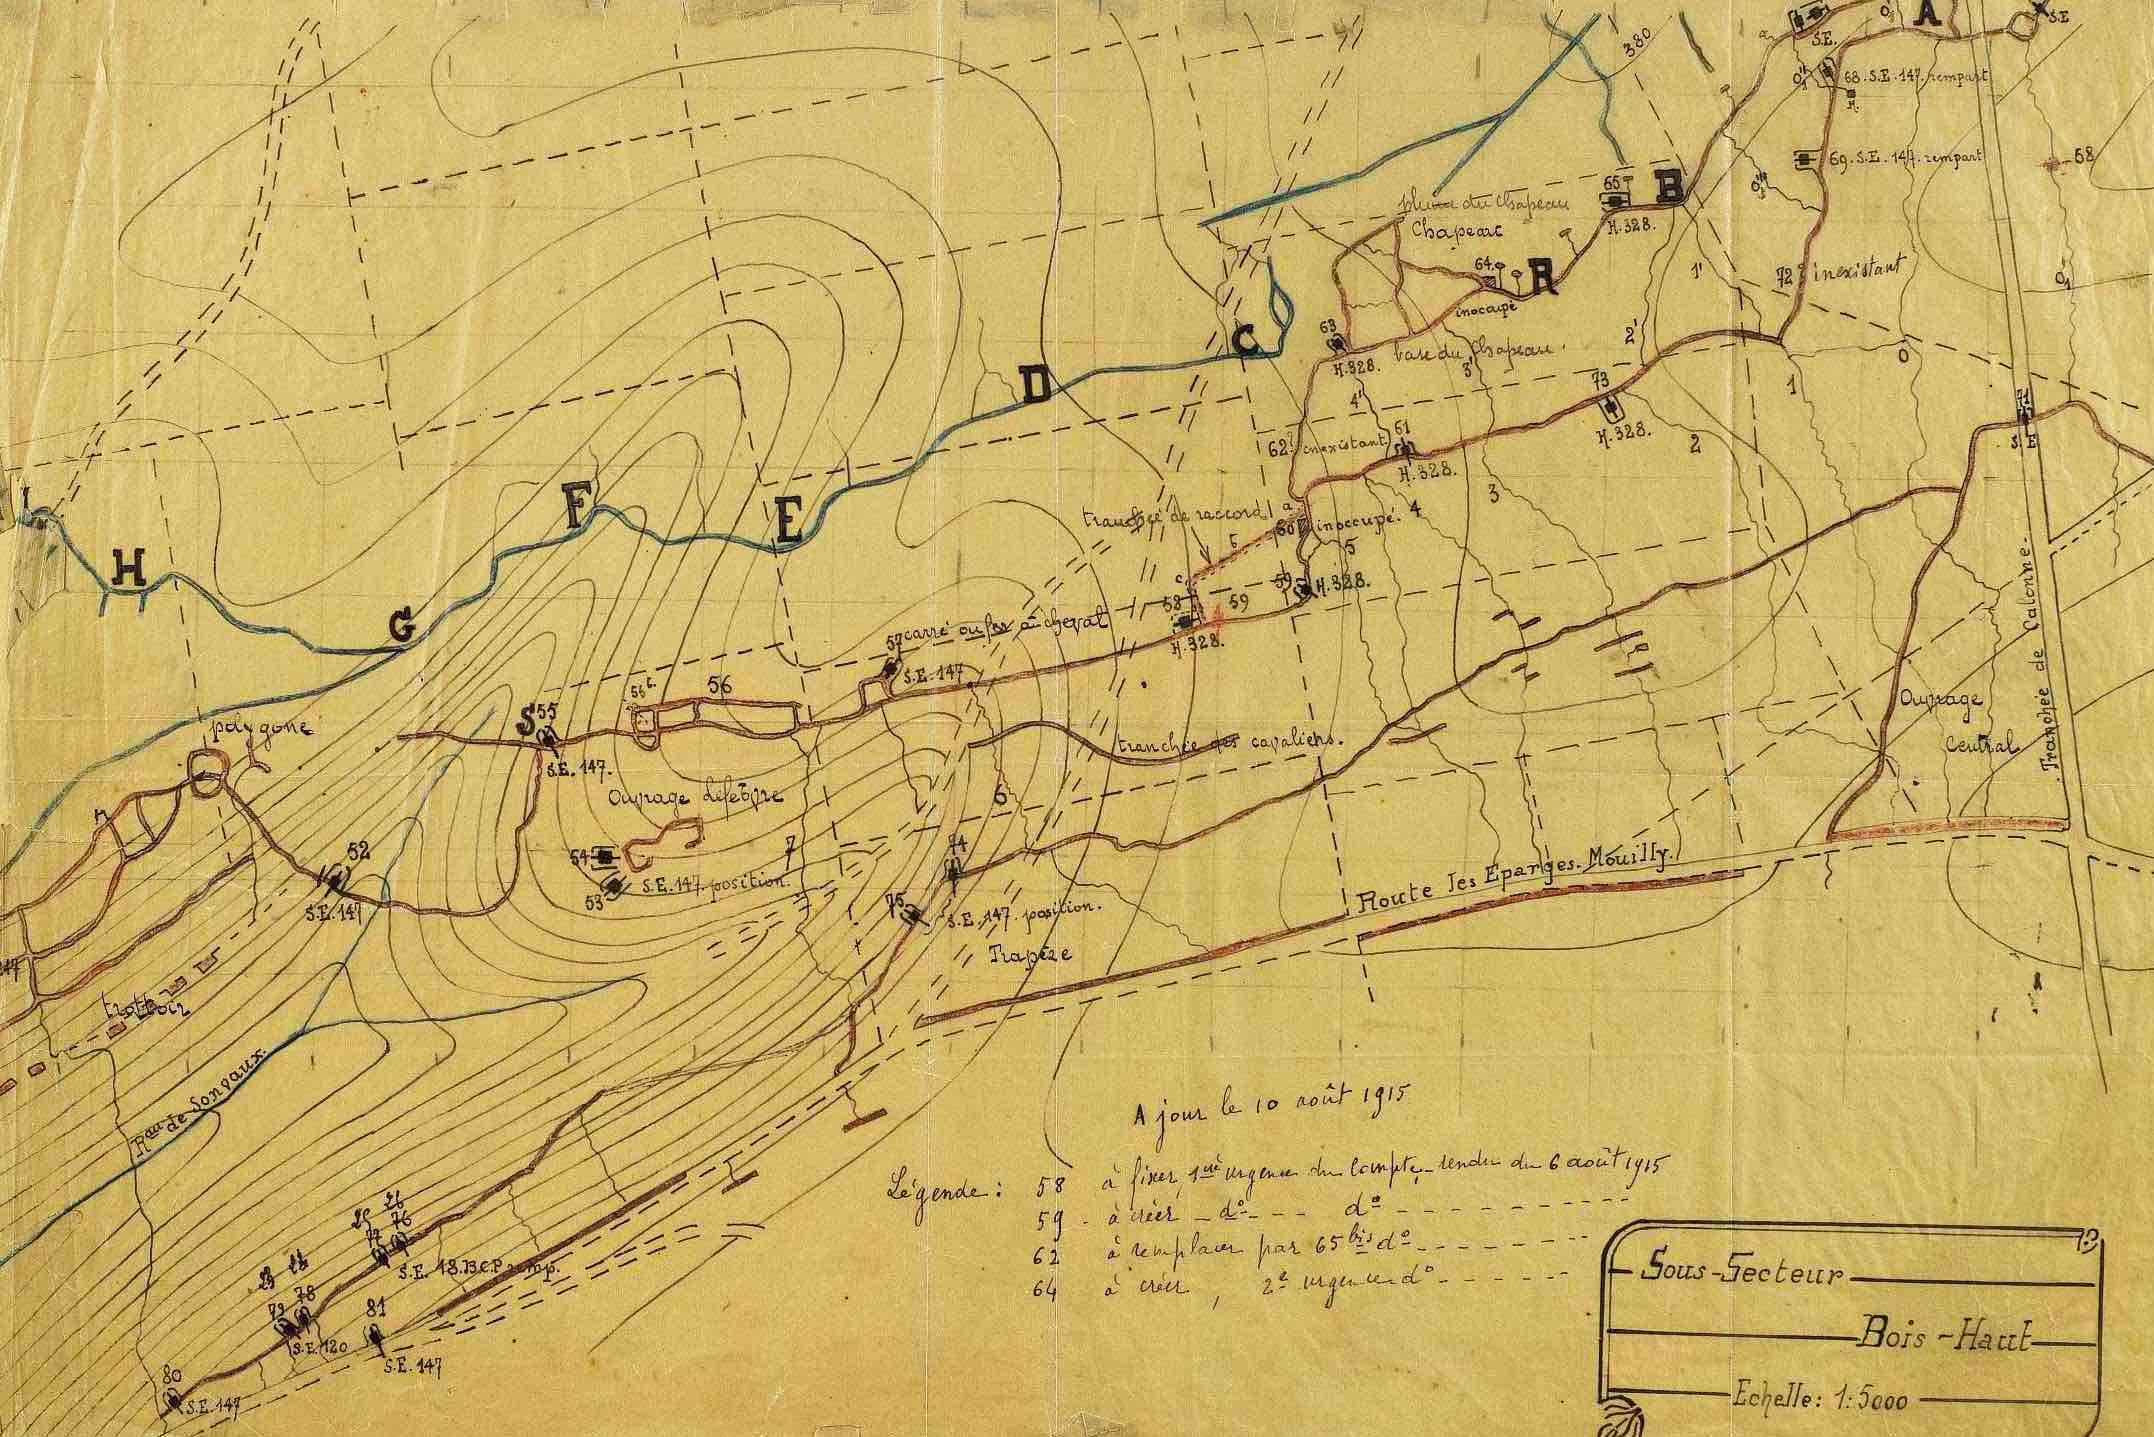 A
S.E
S.E.
380
68. S.E. 147. rempart
H.
69. S.E. 147. rempart
58
65
B
H. 328.
Chapeau
Chapeau
64
R
inocupé
1'
72 inexistant
C
63
H. 328.
base du Chapeau.
2'
3'
4'
0
1
D
73
H. 328.
71
S.E
62? inexistant
51
H. 328.
2
3
4
F
E
tranchée de raccord
a
60
inoccupé.
5
H
59
H. 328.
c
58
59
H. 328.
G
57 carré ou fer à cheval
S.E. 147
56
S
55
S.E. 147.
polygone
tranchée des cavaliers.
Ouvrage Lefebvre
Ouvrage
Central
Tranchée de Calonne.
6
7
54
53
S.E. 147. position.
52
S.E. 147
74
75
S.E. 147. position.
Trapèze
Route les Eparges. Mouilly.
trottoir
Rau de Sonvaux.
A jour le 10 août 1915
Légende : 58 à fixer, 1ère urgence du compte-rendu du 6 août 1915
59 - à créer - d° - - - d° - - - - - - -
62 à remplacer par 65 bis d° - - - - - -
64 à créer , 2e urgence d° - - - - -
25 26
77 76
S.E. 18. B.C.P. remp.
79 78
S.E. 120
81
S.E. 147
80
S.E. 147
Sous-Secteur
Bois-Haut
Echelle: 1:5000